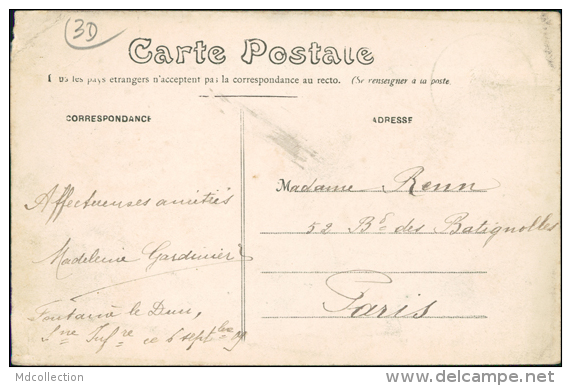 30
Carte Postale
les pays étrangers n'acceptent pas la correspondance au recto. (Se renseigner à la poste
CORRESPONDANCE
ADRESSE
Affectueuses amitiés
Madeleine Gardinier
Fontaine le Dun,
Sne Infre ce 6 septbre 09
Madame Renn
52 Bd des Batignolles
Paris
Mdcollection
http://www.delcampe.net